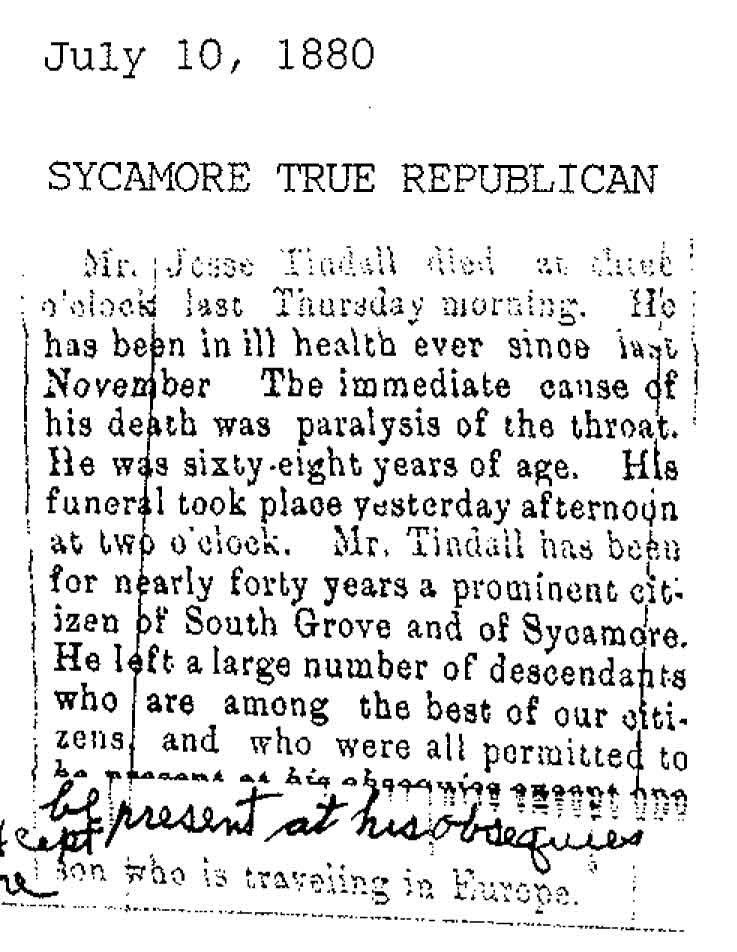 July 10, 1880
SYCAMORE TRUE REPUBLICAN
Mr. Jesse Tindall died at three
o'clock last Thursday morning. He
has been in ill health ever since last
November The immediate cause of
his death was paralysis of the throat.
He was sixty-eight years of age. His
funeral took place yesterday afternoon
at two o'clock. Mr. Tindall has been
for nearly forty years a prominent cit-
izen of South Grove and of Sycamore.
He left a large number of descendants
who are among the best of our citi-
zens, and who were all permitted to
be present at his obsequies except one
be present at his obsequies
son who is traveling in Europe.